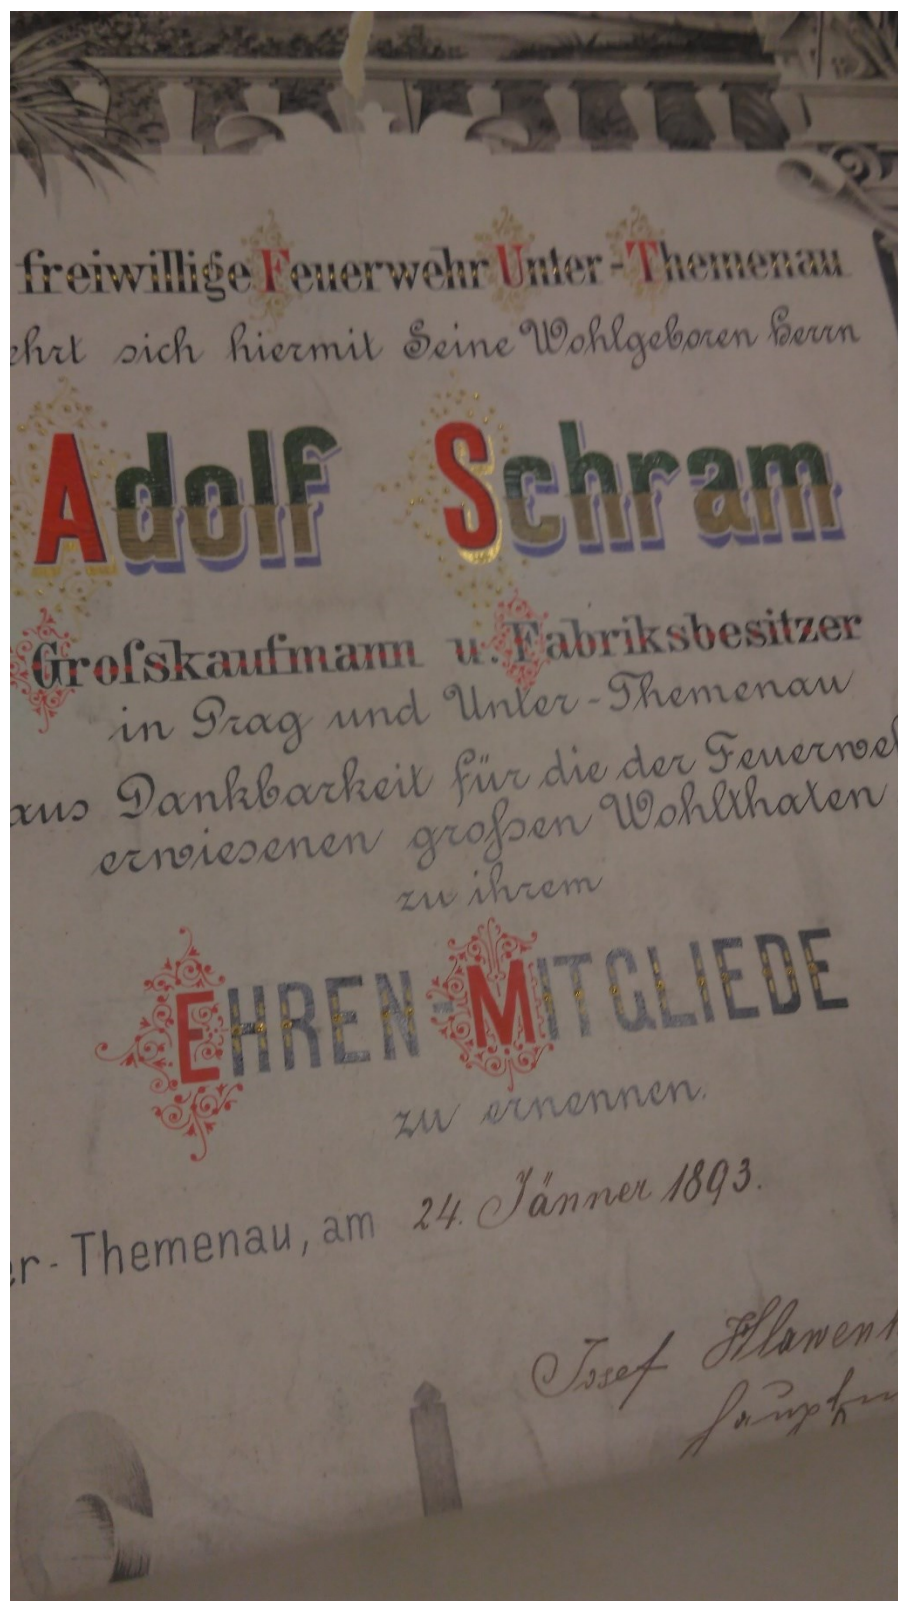 freiwillige Feuerwehr Unter-Themenau
ehrt sich hiermit Seine Wohlgeboren Herrn
Adolf Schram
Grofskaufmann u. Fabriksbesitzer
in Prag und Unter-Themenau
aus Dankbarkeit für die der Feuerweh
erwiesenen großen Wohlthaten
zu ihrem
EHREN-MITGLIEDE
zu ernennen.
er-Themenau, am 24. Jänner 1893.
Josef Hlawent
Hauptm